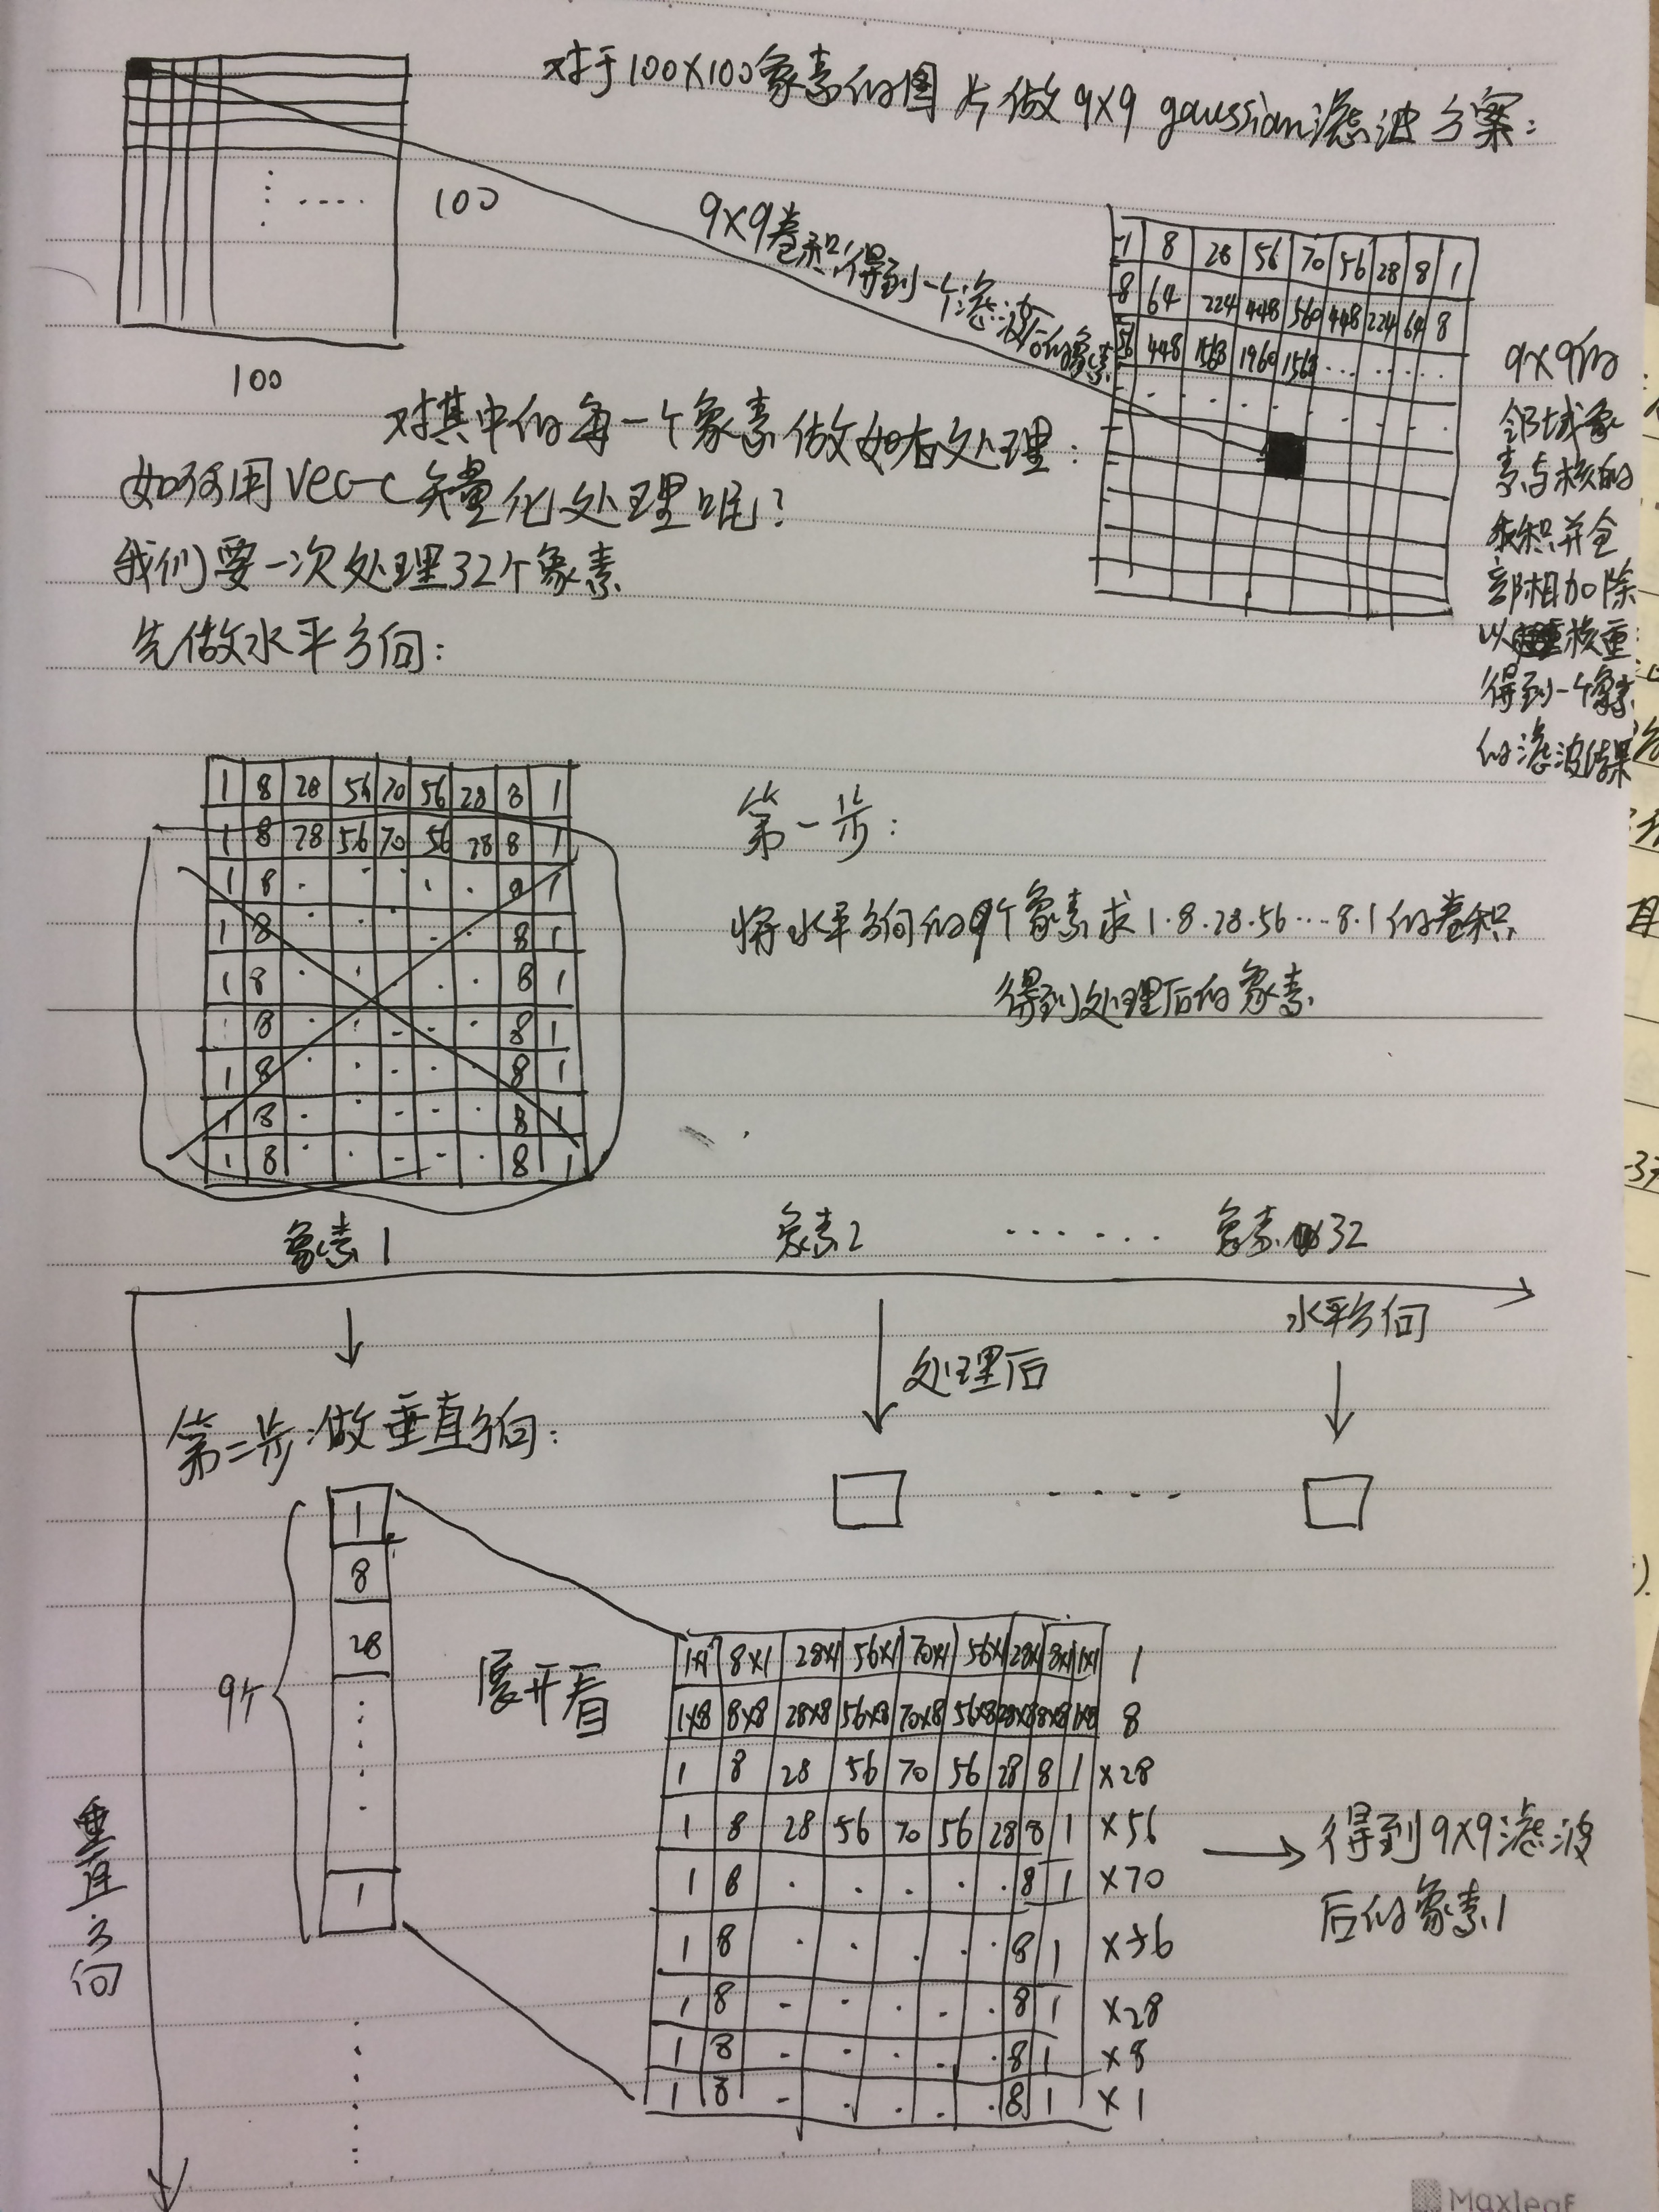 对于100X100象素的图片做9X9 gaussian滤波方案:
100
100
9X9卷积得到一个滤波后的象素
-1 8 28 56 70 56 28 8 1
8 64 224 448 560 448 224 64 8
56 448 1568 1960 1568 . . . . . . .
9X9的
邻域象
素与核的
乘积并全
部相加除
以核重
得到一个象素
的滤波结果
对其中的每一个象素做如右处理:
如何用Vec-C矢量化处理呢?
我们要一次处理32个象素
先做水平方向:
1 8 28 56 70 56 28 8 1
1 8 28 56 70 56 28 8 1
1 8 . . . . . 8 1
1 8 . . . . . 8 1
1 8 . . . . . 8 1
1 8 . . . . . 8 1
1 8 . . . . . 8 1
1 8 . . . . . 8 1
1 8 . . . . . 8 1
第一步:
将水平方向的9个象素求1.8.28.56...8.1的卷积
得到处理后的象素
象素1 象素2 ...... 象素32
水平方向
处理后
第二步:做垂直方向:
9个
1
8
28
1
展开看
1X1 8X1 28X1 56X1 70X1 56X1 28X1 8X1 1X1 1
1X8 8X8 28X8 56X8 70X8 56X8 28X8 8X8 1X8 8
1 8 28 56 70 56 28 8 1 X28
1 8 28 56 70 56 28 8 1 X56
1 8 . . . . . 8 1 X70
1 8 . . . . . 8 1 X56
1 8 . . . . . 8 1 X28
1 8 . . . . . 8 1 X8
1 8 . . . . . 8 1 X1
得到9X9滤波
后的象素1
垂直方向
Maxleaf